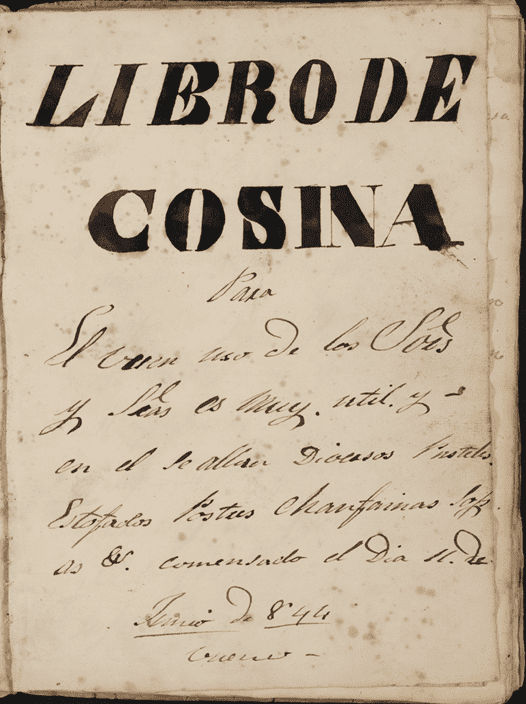 LIBRO DE
COSINA
Para
El vuen uso de los Sores
y Sras es muy. util. y -
en el se allan Diversos Pasteles.
Estofados Postres Chanfainas Sop
as &. comensado el Dia 11. de
Junio de 844
vueno -